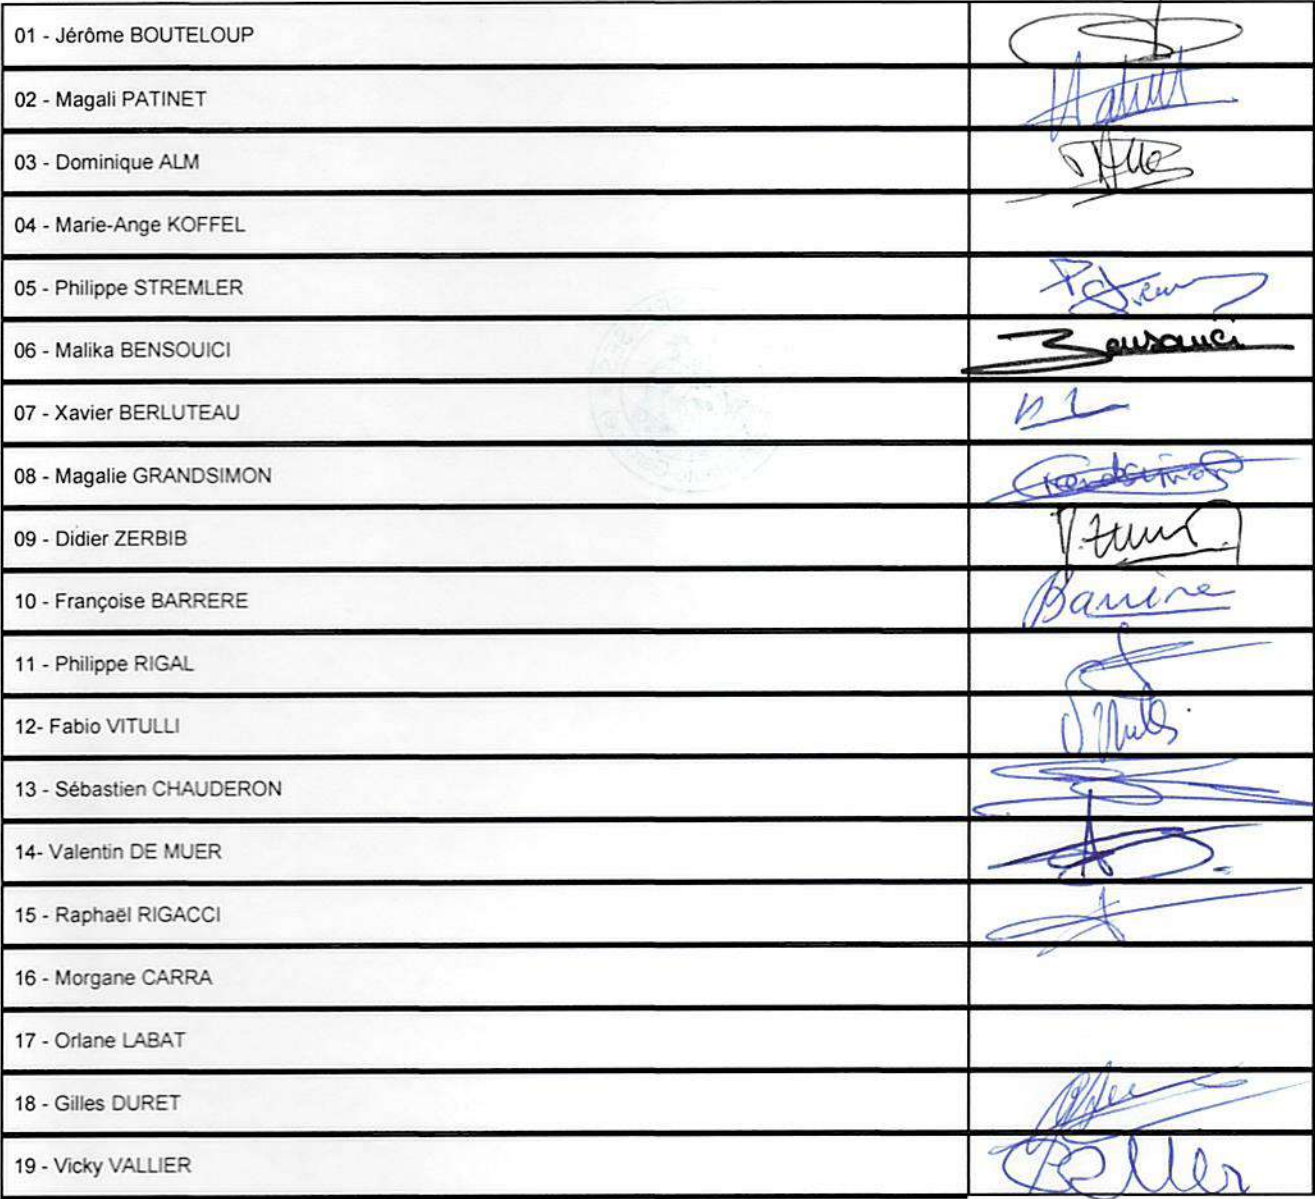 01 - Jérôme BOUTELOUP
02 - Magali PATINET
03 - Dominique ALM
04 - Marie-Ange KOFFEL
05 - Philippe STREMLER
06 - Malika BENSOUICI Bensouici
07 - Xavier BERLUTEAU
08 - Magalie GRANDSIMON Grandsimon
09 - Didier ZERBIB
10 - Françoise BARRERE Barrère
11 - Philippe RIGAL
12- Fabio VITULLI
13 - Sébastien CHAUDERON
14- Valentin DE MUER
15 - Raphaël RIGACCI
16 - Morgane CARRA
17 - Orlane LABAT
18 - Gilles DURET
19 - Vicky VALLIER